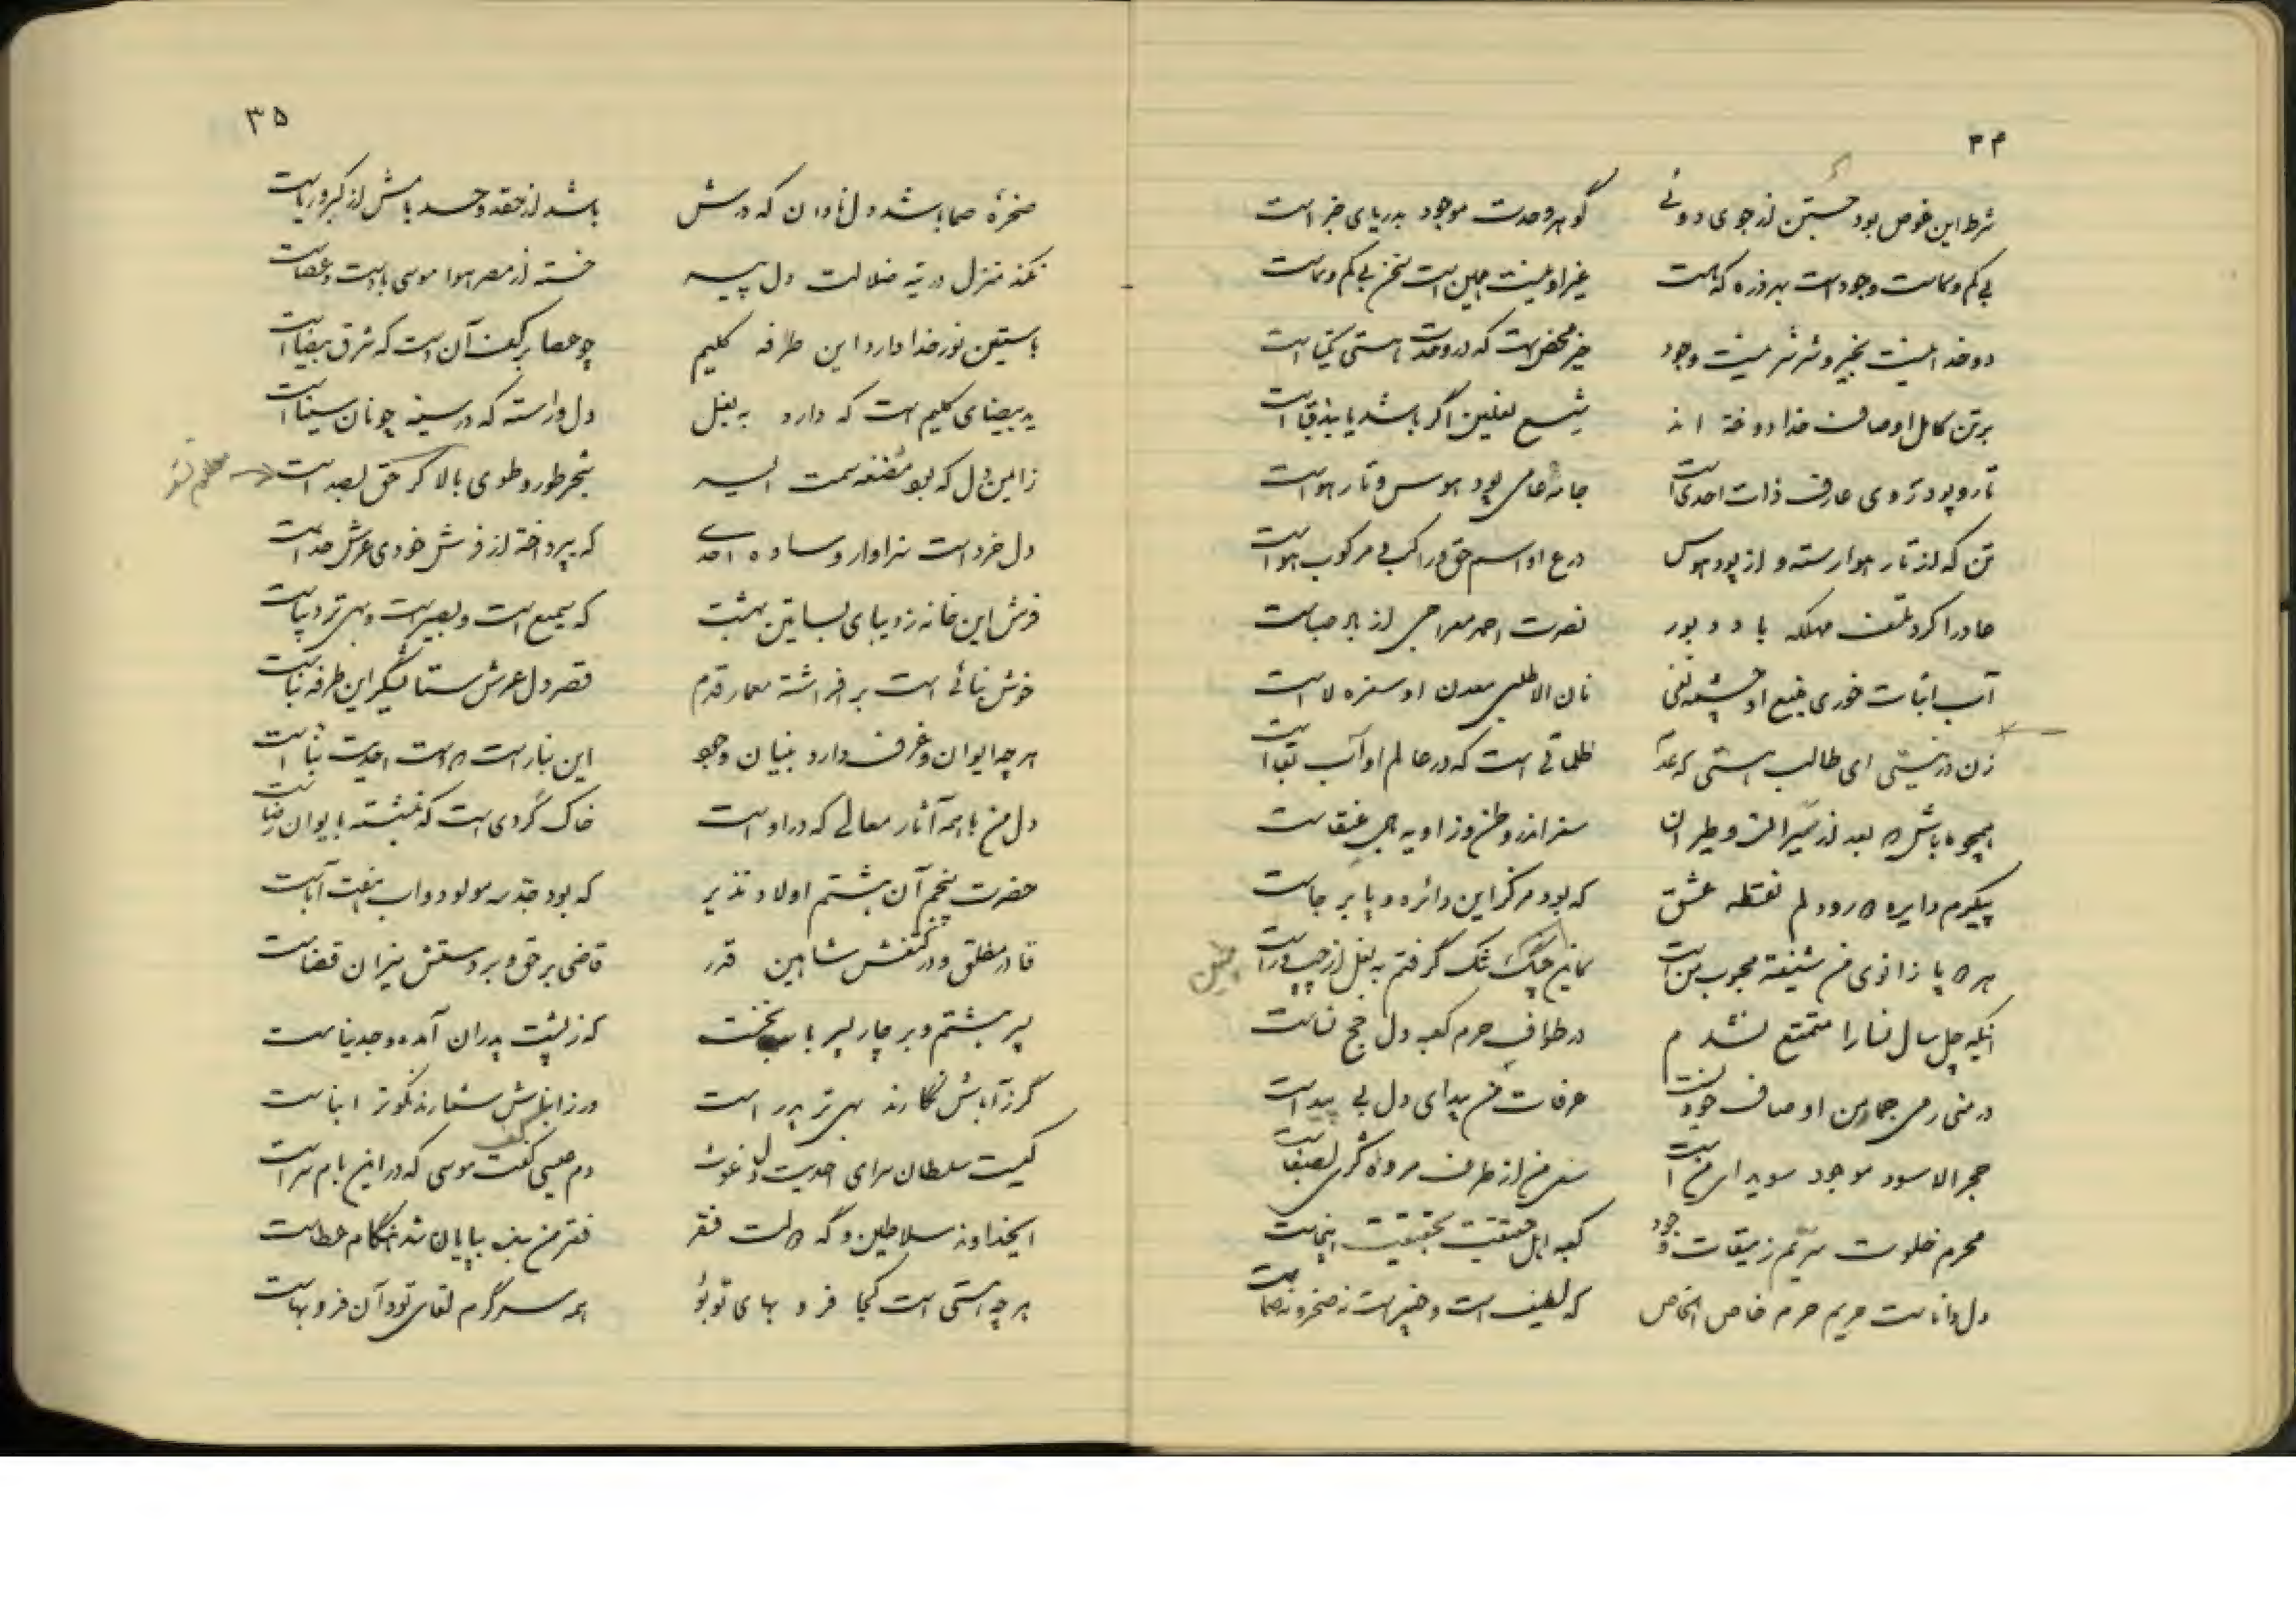 ۳۴
شرط این غوص بود جستن از جوی دوئی گوهر وحدت موجود بدریای جزاست
بی کم و کاست وجود است بهر ذره که هست غیر او نیست همین است سخن بی کم و کاست
دو خدا نیست بخیر و شر شر نیست وجود خیر محض است که در وحدت هستی یکتاست
بر تن کامل اوصاف خدا دوخته اند اگر باشد یا
تار و پود تن وی عارف ذات احدی است جامه عامی پود هوس و تار هواست
تن که از تار هوا رسته و از پود هوس درع او اسم حق و راکب بی مرکوب هواست
عاد را کرد تلف مهلکه باد دبور نصرت احمد معراجی از باد صباست
آب اثبات خوری منبع او چشمه نفی نان الا طلبی معدن او سفره لاست
زن در نیستی ای طالب هستی که ظلماتی است که در عالم او آب بقاست
همچو ما باش که بعد از سیران و طیران سفر اندر وطن و زاویه عنقاست
پیکرم دایره دلم نقطه عشق که بود مرکز این دائره و پا بر جاست
هر که پا زانوی من شیفته محبوب من است تنگ گرفتم به بغل از چپ و راست
آنکه چل سال نسا را متمتع نشدم در طواف حرم کعبه دل حج نساست
در منی رمی جمار من اوصاف خود است عرفات من بیدای دل بی بیداست
حجر الاسود موجود سویدای من است سعی من از طرف مروه بصفاست
محرم خلوت سریم ز میقات وجود کعبه اهل حقیقت بحقیقت اینجاست
دل داناست حریم حرم خاص الخاص که لطیف است و خبیر است نه صخره نه صماست
۳۵
صخره صما باشد دل نادان که درش باشد از حقد و حسد بامش از کبر و ریاست
نکند منزل در تیه ضلالت دل خسته از مصر هوا موسی با دست و عصاست
باستین نور خدا دارد این طرفه کلیم چو عصا بر کف آن است که شرق بیضاست
ید بیضای کلیم است که دارد به بغل دل وارسته که در سینه چونان سیناست
زایمن دل که بود سمت شجر طور و طوی بالا گر حق است
دل خرد است سزاوار وساده احدی که بپرداخته از فرش خودی عرش خداست
فرش این خانه ز دیبای بساتین بهشت که سمیع است و بصیر است و بهی تر دیباست
خوش بنائی است بر افراشته معمار قدم قصر دل عرش ستا بنگر این طرفه بناست
هر چه ایوان و غرف دارد بنیان وجود این بنا راست که هست احدیت بناست
دل من با همه آثار معالی که در اوست خاک گردی است که بنشسته بایوان رضاست
حضرت پنجم آن هشتم اولاد نذیر که بود جد سه مولود و اب هفت آباست
قادر مطلق و در کفش شاهین قدر قاضی بر حق و بر دستش میزان قضاست
پسر هشتم و بر چار پسر باب نخست که ز پشت پدران آمده و جد نیاست
گر ز آباش نگارند بهی تر پدر است ور ز ابناش شمارند نکوتر ابناست
کیست سلطان سرای احدیت دم عیسی کف موسی که در این بام سراست
ایخداوند سلاطین و گه فقر فقر من بنده بپایان شد هنگام عطاست
هر چه هستی است کجا فر و بهای تو بود همه سرگرم لقای تو و آن فر و بهاست